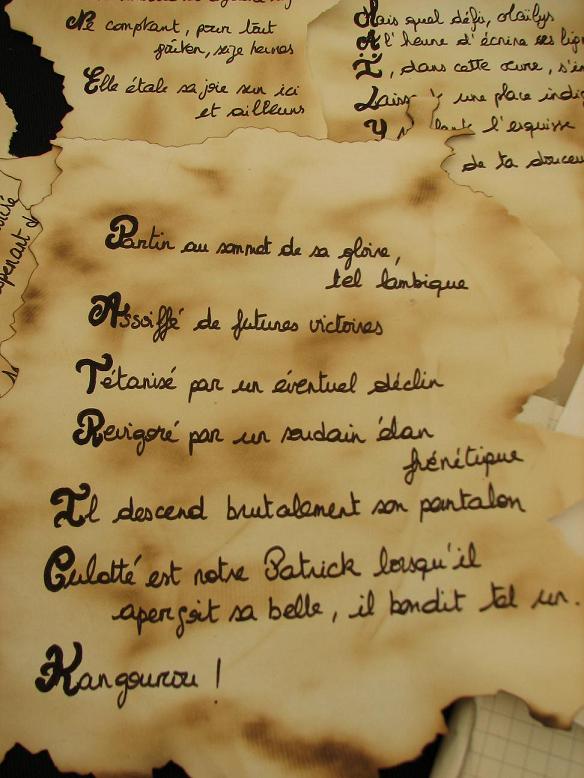 Ne comptant, pour tout
goûter, seize heures
Elle étale sa joie sur ici
et ailleurs
Mais quel défi,
A l'heure d'écrire ses lign
, dans cette œuvre, s'in
une place indic
l'esquisse
de ta douceur
Partir au sommet de sa gloire,
tel lambique
Assoiffé de futures victoires
Tétanisé par un éventuel déclin
Revigoré par un soudain élan
frénétique
Il descend brutalement son pantalon
Culotté est notre Patrick lorsqu'il
aperçoit sa belle, il bondit tel un.
Kangourou !